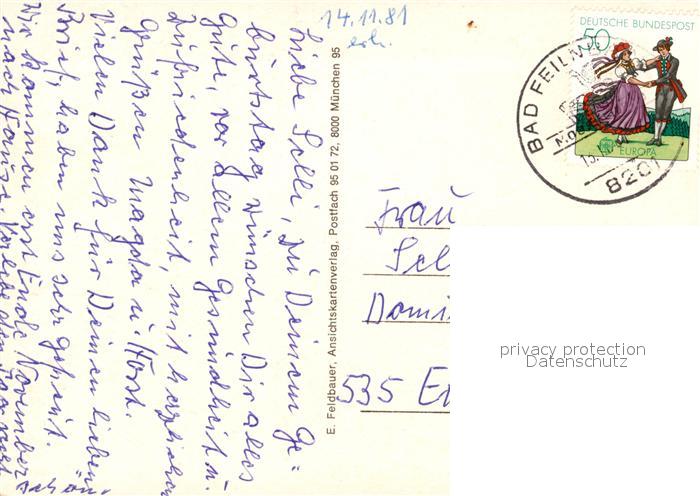 14.11.81
erh.
Liebe Selli, zu Deinem Ge=
burtstag wünschen Dir alles
Gute, vor allem Gesundheit u.
Zufriedenheit, mit herzlichen
Grüßen Magda u. Horst.
Vielen Dank für Deinen lieben
Brief, haben uns sehr gefreut.
Wir kommen erst Ende November
nach Hause
schön
E. Feldbauer, Ansichtskartenverlag, Postfach 95 01 72, 8000 München 95
DEUTSCHE BUNDESPOST
50
EUROPA
BAD FEILN
8201
Frau
Sel
Domi
535 E
privacy protection
Datenschutz